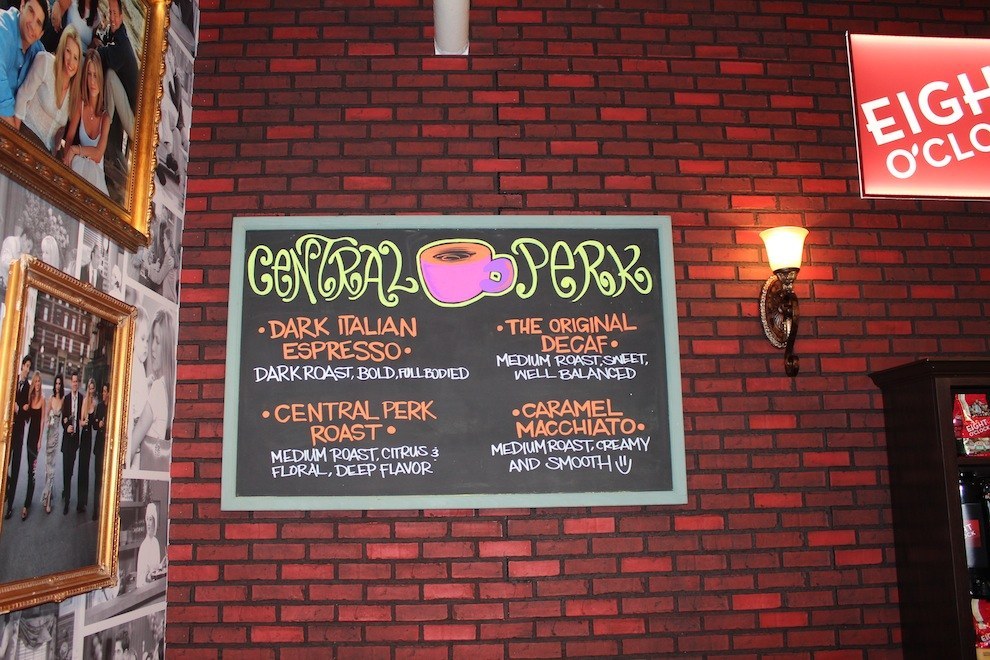 EIGH
O'CLO
CENTRAL PERK
• DARK ITALIAN
ESPRESSO •
DARK ROAST, BOLD, FULL BODIED
• CENTRAL PERK
ROAST •
MEDIUM ROAST, CITRUS &
FLORAL, DEEP FLAVOR
• THE ORIGINAL
DECAF •
MEDIUM ROAST, SWEET,
WELL BALANCED
• CARAMEL
MACCHIATO •
MEDIUM ROAST, CREAMY
AND SMOOTH
EIGHT
O'CLOCK